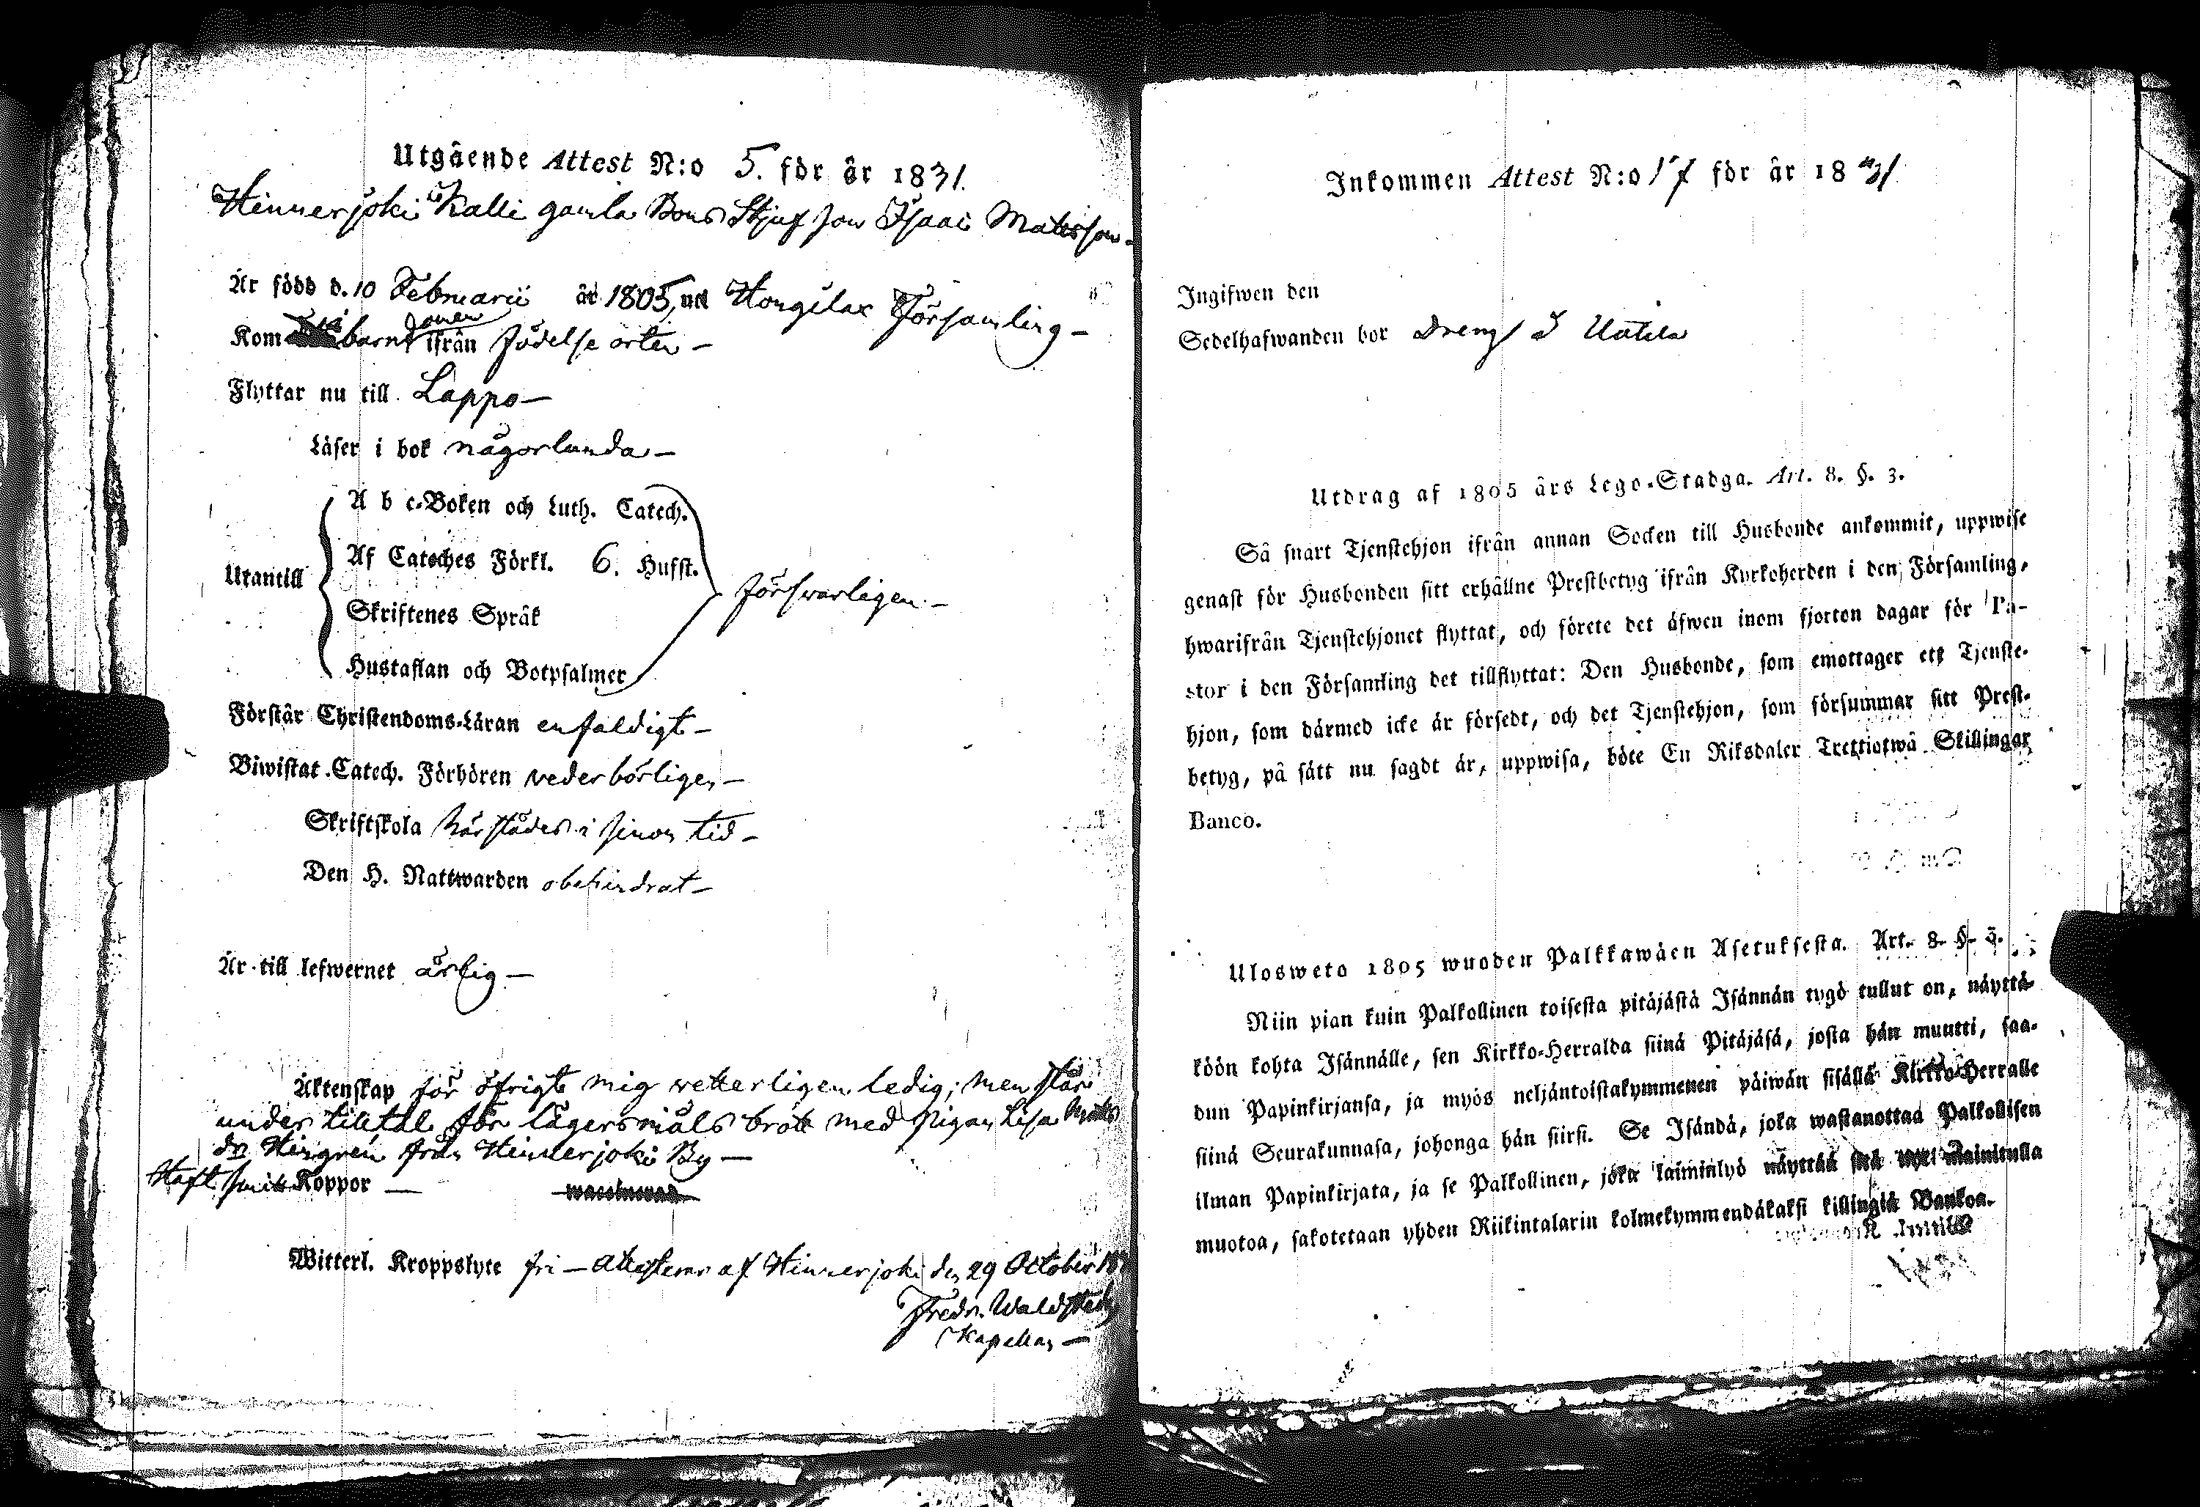 Utgående Attest N:o 5. för år 1831.
Hinnerjoki Kalli gamla Bons Stjuf son Isaac Matsson.
Är född d. 10 Februarii år 1805, uti Hongilax Församling –
Kom barn ifrån födelse orten –
Flyttar nu till Lappo –
Läser i bok någorlunda –
A b c-Boken och Luth. Catech.
Af Cateches Förkl. 6. Hufst.
Utantill
försvarligen –
Skriftenes Språk
Hustaflan och Botpsalmer
Förstår Christendoms-Läran enfaldigt –
Biwistat Catech. Förhören vederbörligen –
Skriftskola härstädes i sinom tid –
Den H. Nattwarden obehindrat –
Är till lefwernet ärlig –
Äktenskap för öfrigt mig vetterligen ledig; men står
under tilltal för lägersmåls brott med pigan Lisa Mats
dr Hirgren från Hinnerjoki By –
Haft smitt Koppor –
Witterl. Kroppslyte fri – Attesterar af Hinnerjoki den 29 October
Fredr. Waldstedt
Kapellan –
Inkommen Attest N:o 17 för år 1831
Ingifwen den
Sedelhafwanden bor Dreng I Uotila
Utdrag af 1805 års Lego-Stadga. Art. 8. §. 3.
Så snart Tjenstehjon ifrån annan Socken till Husbonde ankommit, uppwise
genast för Husbonden sitt erhållne Prestbetyg ifrån Kyrkoherden i den Församling,
hwarifrån Tjenstehjonet flyttat, och förete det äfwen inom fjorton dagar för Pa-
stor i den Församling det tillflyttat: Den Husbonde, som emottager ett Tjenste-
hjon, som därmed icke är försedt, och det Tjenstehjon, som försummar sitt Prest-
betyg, på sätt nu sagdt är, uppwisa, böte En Riksdaler Trettiotwå Skillingar
Banco.
Ulosweto 1805 wuoden Palkkawäen Asetuksesta. Art. 8. §. 3.
Niin pian kuin Palkollinen toisesta pitäjästä Isännän tygö tullut on, näyttä-
köön kohta Isännälle, sen Kirkko-Herralda siinä Pitäjäsä, josta hän muutti, saa-
dun Papinkirjansa, ja myös neljäntoistakymmenen päiwän sisällä Kirkko-Herralle
siinä Seurakunnasa, johonga hän siirsi. Se Isändä, joka wastanottaa Palkollisen
ilman Papinkirjata, ja se Palkollinen, joka laiminlyö näyttää sitä nyt mainitulla
muotoa, sakotetaan yhden Riikintalarin kolmekymmendäkaksi killingiä Bankoa.